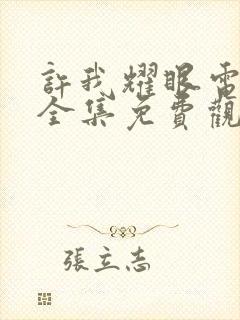 許我耀眼電
全集免費觀
張立志